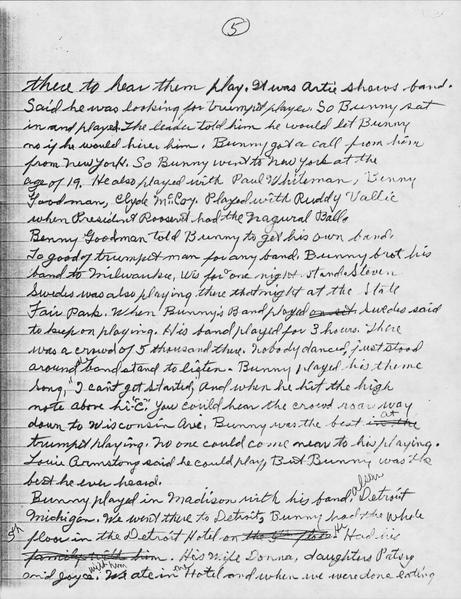 5
there to hear them play. It was Artie Shows band.
Said he was looking for trumpet player. So Bunny sat
in and played. The leader told him he would let Bunny
no if he would hirer him. Bunny got a call from him
from New York. So Bunny went to New York at the
age of 19. He also played with Paul Whiteman, Benny
Goodman, Clyde McCoy. Played with Ruddy Vallie
when President Roosevt had the Nagural Balls
Benny Goodman told Bunny to get his own band.
To good of trumpet man for any band. Bunny brot his
band to Milwaukee, Wis for one night stand. Steven
Swedes was also playing there that night at the State
Fair Park. When Bunny's Band played on set Swedes said
to keep on playing. His band played for 3 hours. There
was a crowd of 5 thousand there. Nobody danced, just stood
around bandstand to listen. Bunny played his theme
song, "I can't get started, and when he hit the high
note above hi "C" you could hear the crowd roar way
down to Wisconsin Ave. Bunny was the best in the at
trumpet playing. No one could come near to his playing.
Louie Armstong said he could play But Bunny was the
best he ever heard.
Bunny played in Madison with his band. also Detroit
Michigan. We went there to Detroit, Bunny had the whole
5th floor in the Detroit Hotel on the Had his
family with him. His Wife Donna, daughters Patsy
and Joyce. with him We ate in Hotel and when we were done eating